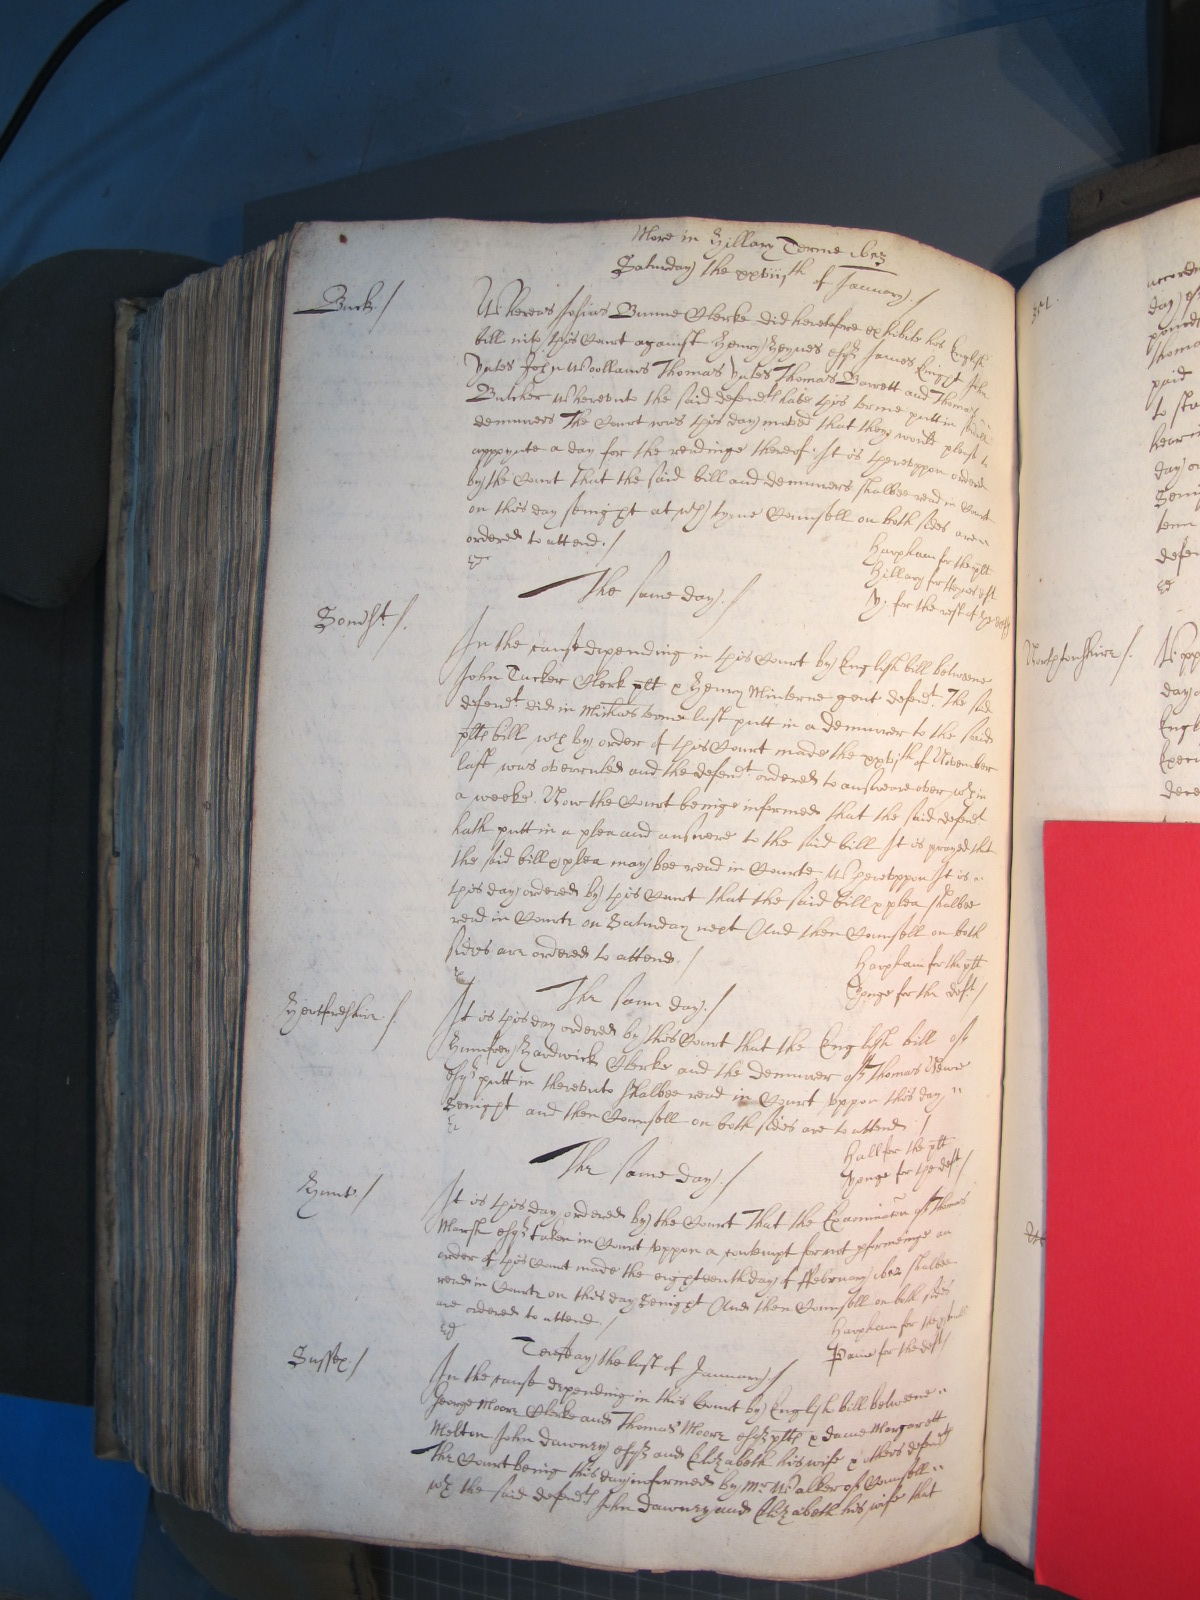 More in Hillary Terme 1623
Saturday the xxviijth of January /
Buck /
Whereas Josias Bunne Clerke did heretofore exhibite his English
bill into this Court against Henry Heynes esqr James Knight John
Yates John Woollams Thomas Yates Thomas Barrett and Thomas
Butcher Wherevnto the said defendts have this terme putt in
demurrers The Court was this day moved that they would please to
appoynte a day for the readinge thereof. It is therevppon ordered
by the Court That the said bill and demurrers shalbee read in Court
on this day senight at wch tyme Counsell on both sides are
ordered to attend. /
Harpham for the plt
Hillary for
Y: for the rest of the defts
The same day. /
Somst /.
In the cause depending in this Court by English bill betweene
John Tucker Clerk plt & Henry Minterne gent defendt. The said
defendt did in Michas terme last putt in a demurrer to the said
plts bill wch by order of this Court made the xxvjth of November
last was overruled and the defendt ordered to answere over wthin
a weeke. Now the Court beinge informed that the said defendt
hath putt in a plea and answere to the said bill It is prayed that
the said bill & plea may bee read in Courte Wherevppon It is
this day ordered by this Court that the said bill & plea shalbee
read in Courte on Saturday next And then Counsell on both
sides are ordered to attend. /
Harpham for the plt
Yonge for the deft /
The same day. /
Hertfordshire /.
It is this day ordered by this Court that the English bill of
Humfrey Hardwick Clerke and the demurrer of Thomas
esqr putt in therevnto shalbee read in Court vppon this day
Senight and then Counsell on both sides are to attend /
Hall for the plt
Yonge for the deft /
The same day. /
Hunt /
It is this day ordered by the Court That the Examinacon of Thomas
Marsh esqr taken in Court vppon a contempt for not pformeinge an
order of this Court made the eighteenth day of ffebruary 1622 shalbee
read in Courte on this day Senight And then Counsell on both sides
are ordered to attend. /
Harpham for the
Paine for the deft /
Tewsday the last of January /
Sussex /
In the cause depending in this Court by English bill betweene
George Moore Clerke and Thomas Moore esqr plts & dame Margarett
Melton John Dawney esqr and Elizabeth his wife & others defendts
The Court being this day informed by Mr Walker of Counsell
wth the said defendts John Dawney and Elizabeth his wife that
Northtonshire /.